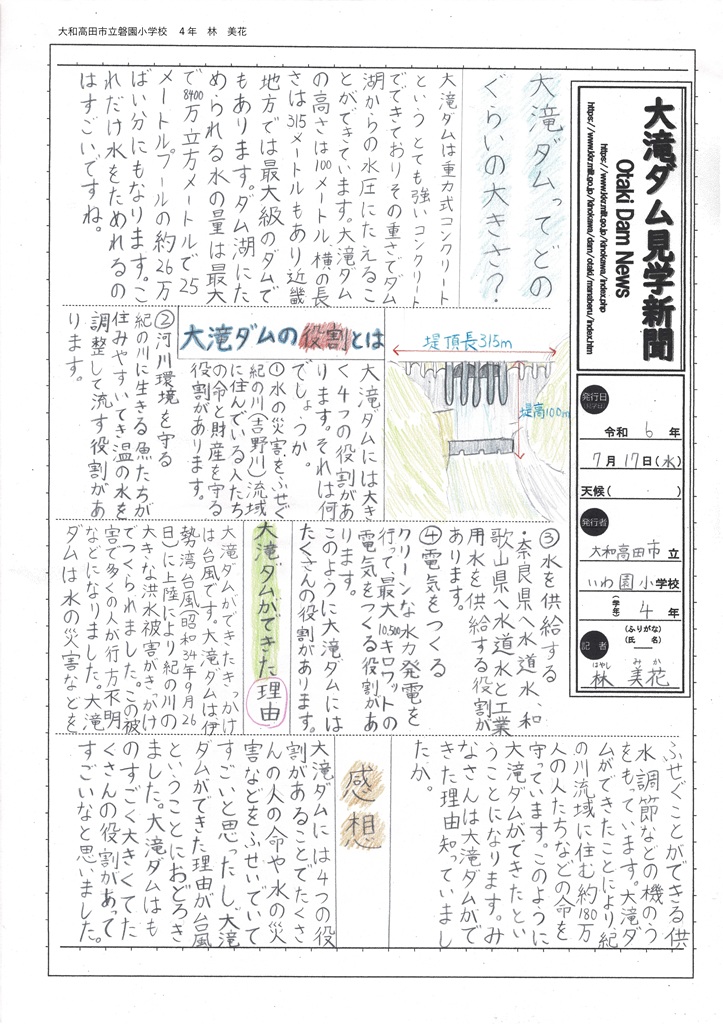 大和高田市立磐園小学校　4年　林　美花
大滝ダム見学新聞
Otaki Dam News
https://www.kkr.mlit.go.jp/kinokawa/index.php
https://www.kkr.mlit.go.jp/kinokawa/dam/otaki/manaberu/index.htm
発行日
令和　6　年
7月17日(水)
天候(　　　)
発行者
大和高田市　立
いわ園小学校
(学年)　4　年
記者
(ふりがな)
(氏　名)
はやし　みか
林　美花
大滝ダムってどの
ぐらいの大きさ?
大滝ダムは重力式コンクリート
というとても強いコンクリート
でできておりその重さでダム
湖からの水圧にたえるこ
とができています。大滝ダム
の高さは100メートル、横の長
さは315メートルもあり近畿
地方では最大級のダムで
もあります。ダム湖にた
められる水の量は最大
で8400万立方メートルで25
メートルプールの約26万
ばい分にもなります。こ
れだけ水をためれるの
はすごいですね。
堤頂長315m
堤高100m
大滝ダムの役割とは
大滝ダムには大き
く4つの役割があ
ります。それは何
でしょうか。
①水の災害をふせぐ
紀の川(吉野川)流域
に住んでいる人たち
の命と財産を守る
役割があります。
②河川環境を守る
紀の川に生きる魚たちが
住みやすいてき温の水を
調整して流す役割があ
ります。
③水を供給する
・奈良県へ水道水、和
歌山県へ水道水と工業
用水を供給する役割が
あります。
④電気をつくる
クリーンな水力発電を
行って最大10,500キロワットの
電気をつくる役割があ
ります。
このように大滝ダムには
たくさんの役割があります。
大滝ダムができた理由
大滝ダムができたきっかけ
は台風です。大滝ダムは伊
勢湾台風(昭和34年9月26
日)に上陸により紀の川の
大きな洪水被害がきっかけ
でつくられました。この被
害で多くの人が行方不明
などになりました。大滝
ダムは水の災害などを
ふせぐことができる供
水調節などの機のう
をもています。大滝ダ
ムができたことにより、紀
の川流域に住む約180万
人の人たちなどの命を
守っています。このように
大滝ダムができたとい
うことになります。み
なさんは大滝ダムがで
きた理由知っていまし
たか。
感想
大滝ダムには4つの役
割があることでたくさ
んの人の命や水の災
害などをふせいでいて
すごいと思ったし、大滝
ダムができた理由が台風
ということにおどろき
ました。大滝ダムはも
のすごく大きくてた
くさんの役割があって
すごいなと思いました。